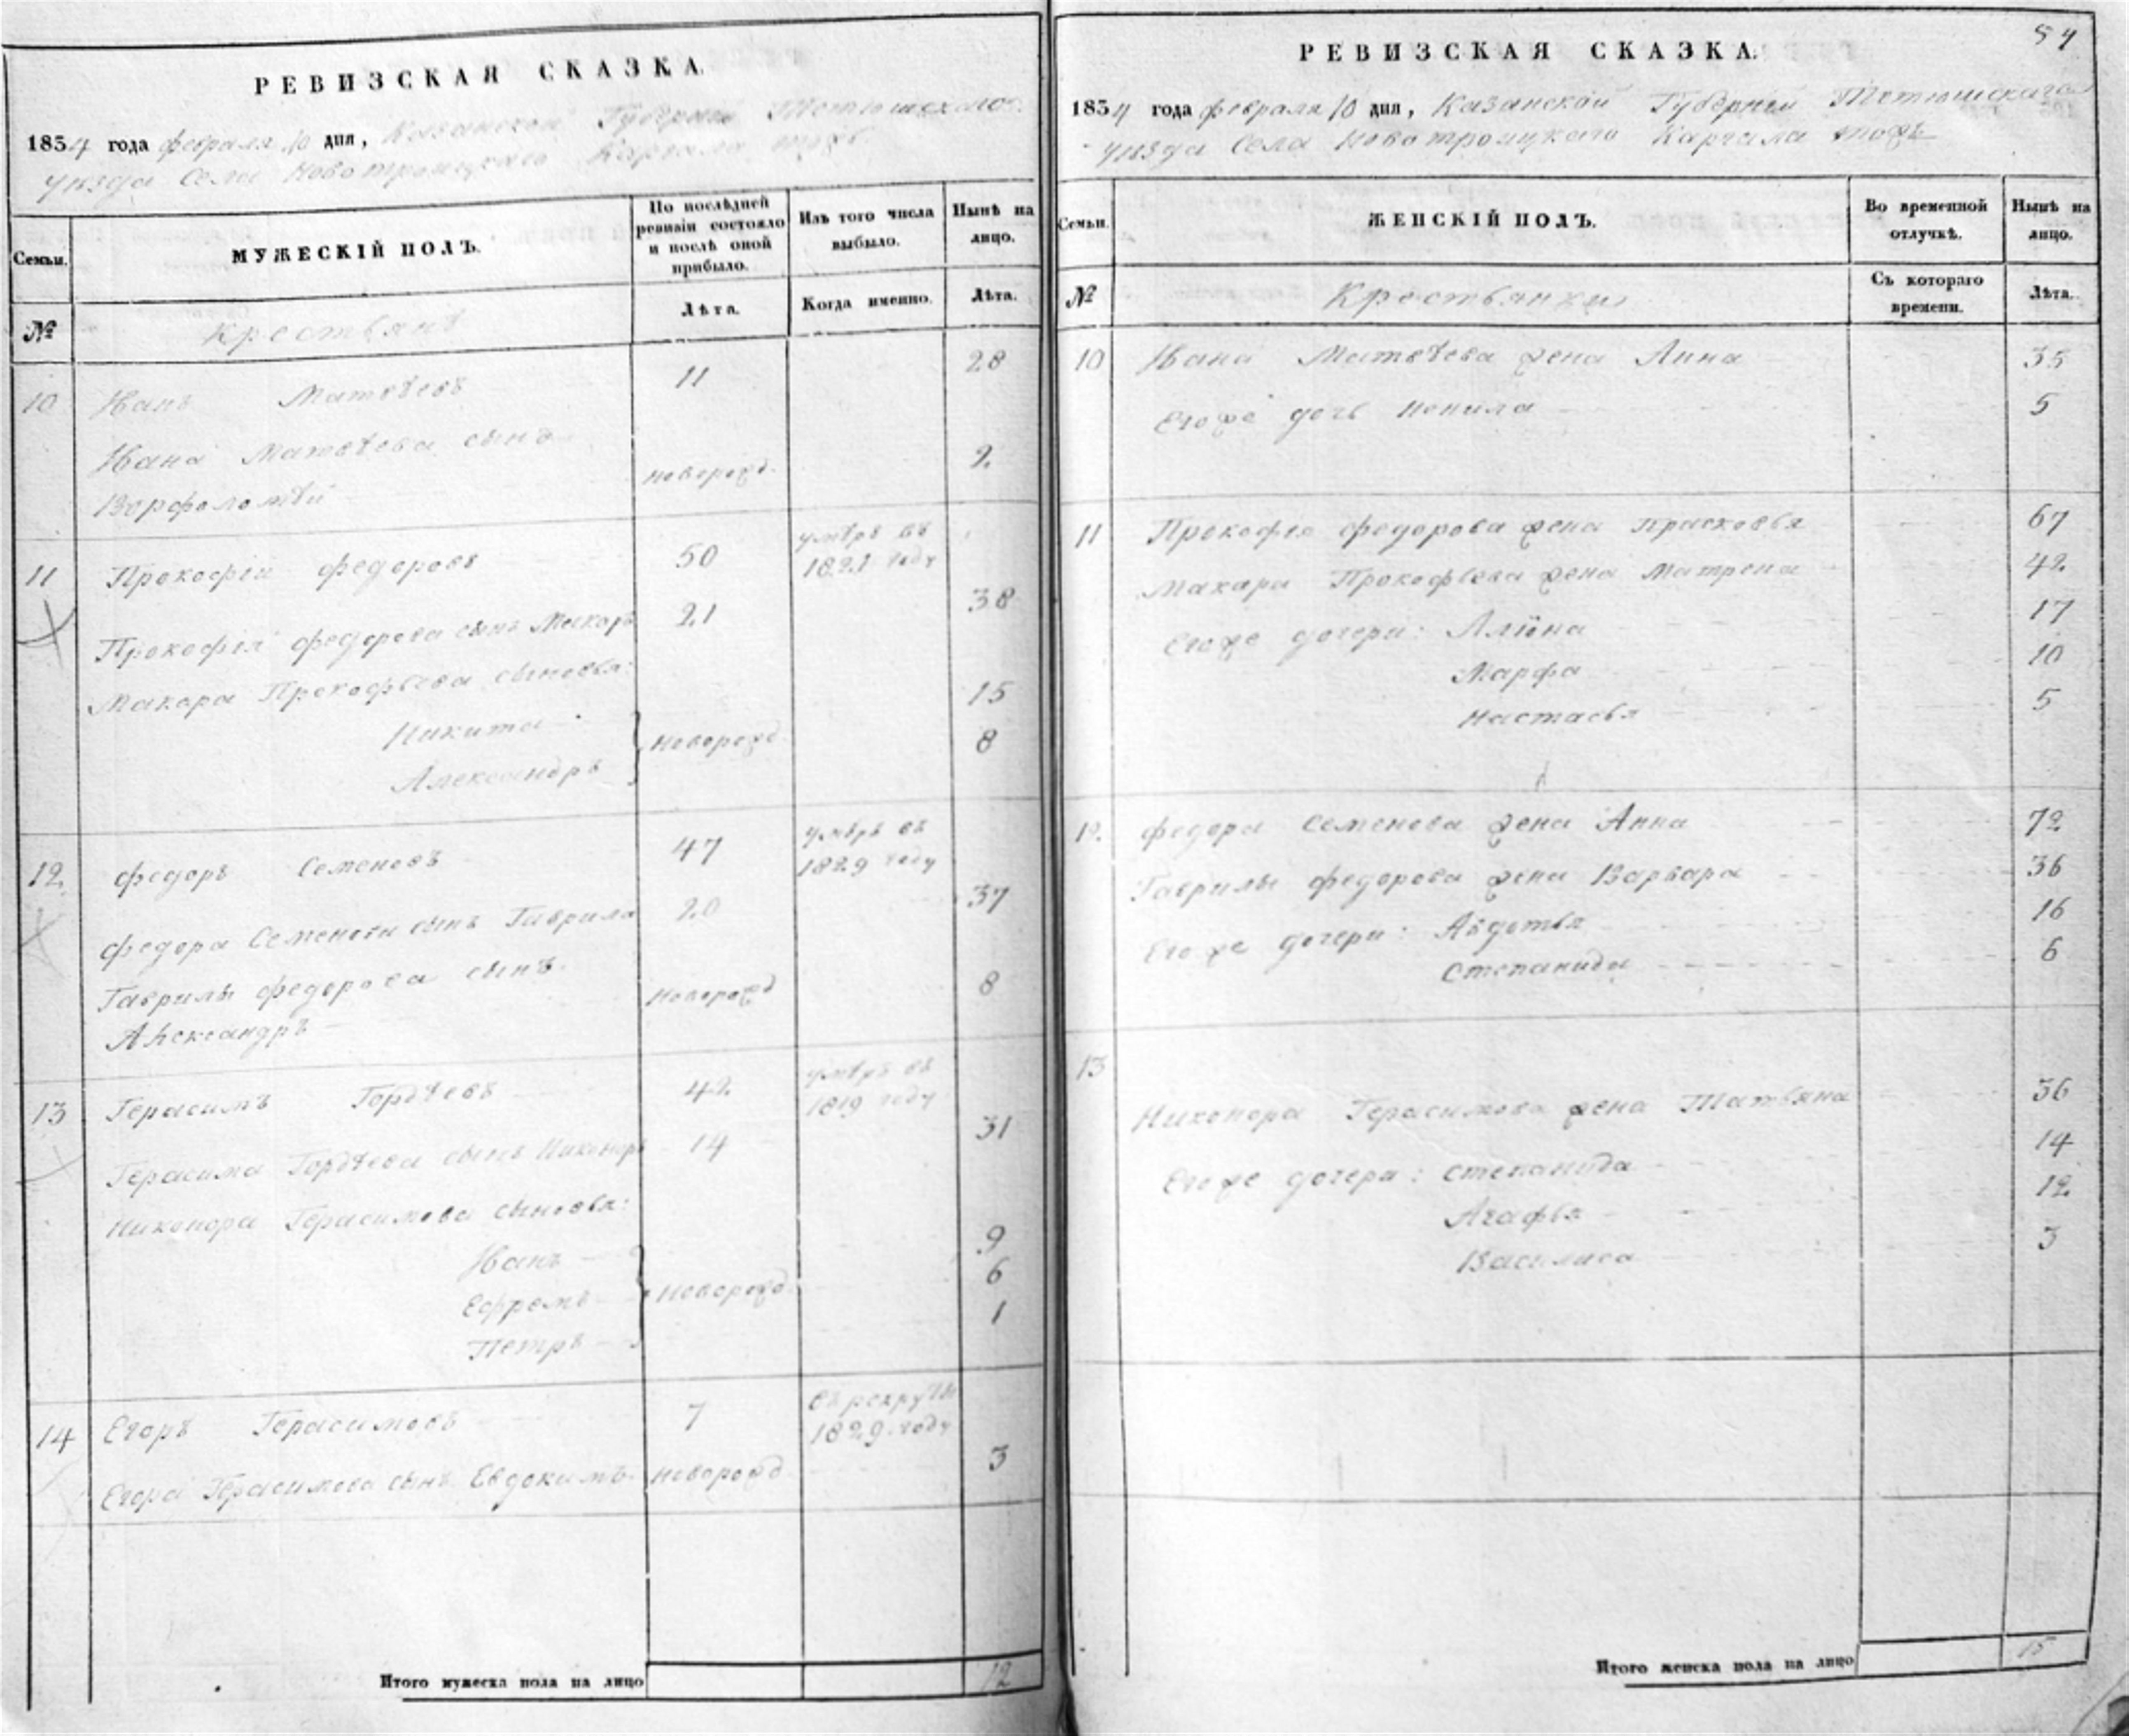 РЕВИЗСКАЯ СКАЗКА.
1834 года февраля 10 дня, Казанской Губерніи Тетюшскаго
уѣзда Села Новотроицкаго Каргала тожъ
Семьи.
МУЖЕСКІЙ ПОЛЪ.
По послѣдней
ревизіи состояло
и послѣ оной
прибыло.
Изъ того числа
выбыло.
Нынѣ на
лицо.
№
Крестьянѣ
Лѣта.
Когда именно.
Лѣта.
10 Иванъ Матвѣевъ 11 28
Ивана Матвѣева сынъ
Ворфоломѣй новорожд. 2
11 Прокофій Федоровъ 50 умѣръ въ
1821 году
Прокофія Федорова сынъ Макаръ 21 38
Макара Прокофьева сыновья:
Никита 15
Александръ Новорожд. 8
12 Федоръ Семеновъ 47 умѣръ въ
1829 году
Федора Семенова сынъ Гаврила 20 37
Гаврилы Федорова сынъ
Александръ Новорожд 8
13 Герасимъ Гордѣевъ 42 умѣръ въ
1819 году
Герасима Гордѣева сынъ Никоноръ 14 31
Никонора Герасимова сыновья:
Иванъ 9
Ефремъ Новорожд. 6
Петръ 1
14 Егоръ Герасимовъ 7 въ рекруты
1829 году
Егора Герасимова сынъ Евдокимъ новорожд 3
Итого мужеска пола на лицо 12
54
РЕВИЗСКАЯ СКАЗКА.
1834 года февраля 10 дня, Казанской Губерніи Тетюшскаго
уѣзда Села Новотроицкаго Каргала тожъ
Семьи.
ЖЕНСКІЙ ПОЛЪ.
Во временной
отлучкѣ.
Нынѣ на
лицо.
№
Крестьянки
Съ котораго
времени.
Лѣта.
10 Ивана Матвѣева жена Анна 35
Егоже дочь Ненила 5
11 Прокофія Федорова жена Прасковья 67
Макара Прокофьева жена Матрена 42
Егоже дочери: Алііна 17
Марфа 10
Настасья 5
12. Федора Семенова жена Анна 72
Гаврилы Федорова жена Варвара 36
Егоже дочери: Авдотья 16
Степанида 6
13
Никонора Герасимова жена Татьяна 36
Егоже дочери: Степанида 14
Агафья 12
Василиса 3
Итого женска пола на лицо 15